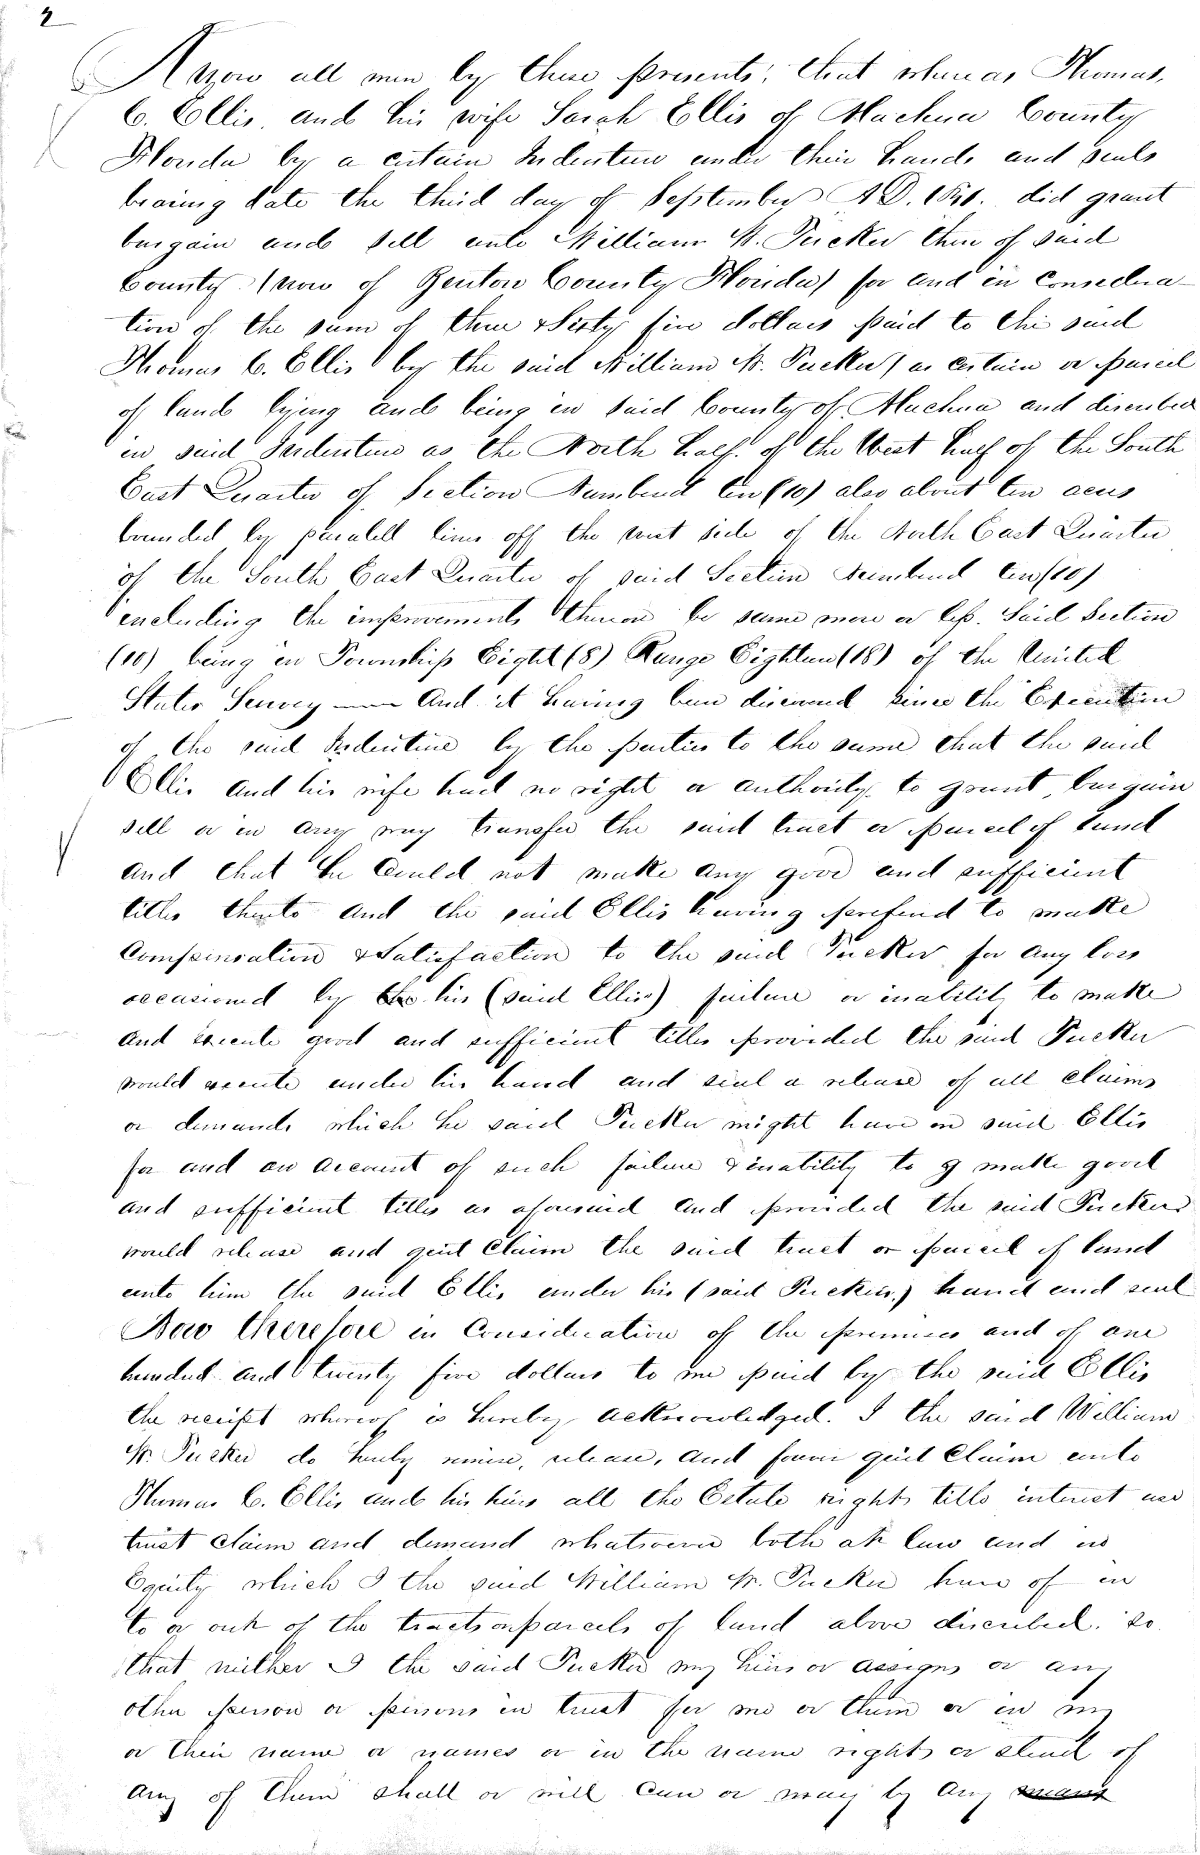 2
Know all men by these presents; that whereas Thomas.
C. Ellis, and his wife Sarah Ellis of Alachua County
Florida by a certain Indenture under their hands and seals
bearing date the third day of September A.D. did grant
bargain and sell unto William W. Tucker then of said
County (now of Benton County Florida) for and in considera-
tion of the sum of three & Sixty five dollars paid to the said
Thomas C. Ellis by the said William W. Tucker) a certain or parcel
of land lying and being in said County of Alachua and discribed
in said Indenture as the North half of the West half of the South
East Quarter of Section Numbered ten (10) also about ten acres
bounded by paralell lines off the west side of the North East Quarter
of the South East Quarter of said Section Numbered ten (10)
including the improvements thereon be same more or less. Said Section
(10) being in Township Eight (8) Range Eighteen (18) of the United
States Survey —— And it having been discovered since the Execution
of the said Indenture by the parties to the same that the said
Ellis and his wife had no right or authority to grant, bargain
sell or in any way transfer the said tract or parcel of land
and that he could not make any good and sufficient
titles thereto and the said Ellis having prefered to make
Compensation & Satisfaction to the said Tucker for any loss
occasioned by the his (said Ellis) failure or inability to make
and execute good and sufficient titles provided the said Tucker
would execute under his hand and seal a release of all claims
or demands which he said Tucker might have on said Ellis
for and on account of such failure & inability to g make good
and sufficient titles as aforesaid and provided the said Tucker
would release and quit Claim the said tract or parcel of land
unto him the said Ellis under his (said Tuckers) hand and seal
Now therefore in Consideration of the premises and of one
hundred and twenty five dollars to me paid by the said Ellis
the receipt whereof is hereby acknowledged. I the said William
W. Tucker do hereby remise, release, and forever quit Claim unto
Thomas C. Ellis and his heirs all the Estate right, title interest use
trust claim and demand whatsoever both at law and in
Equity which I the said William W. Tucker have of in
to or out of the tracts or parcels of land above discribed. So
that neither I the said Tucker my heirs or assigns or any
other person or persons in trust for me or them or in my
or their name or names or in the name right or stead of
any of them shall or will can or may by any means